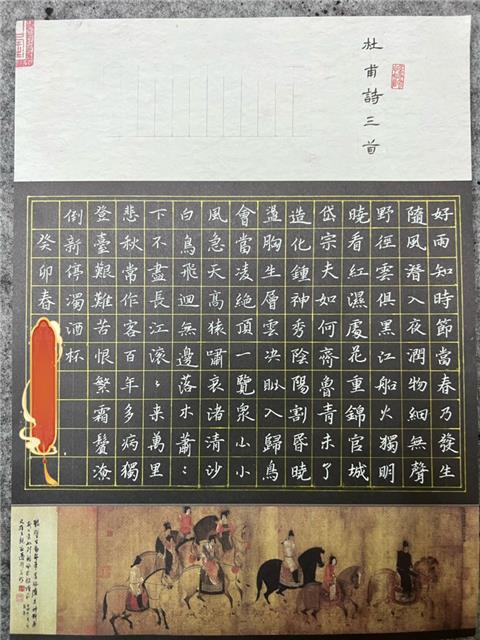 杜甫詩三首
好雨知時節當春乃發生
隨風潛入夜潤物細無聲
野徑雲俱黑江船火獨明
曉看紅濕處花重錦官城
岱宗夫如何齊魯青未了
造化鍾神秀陰陽割昏曉
盪胸生層雲決眦入歸鳥
會當凌絶頂一覽衆山小
風急天高猿嘯哀渚清沙
白鳥飛迴無邊落木蕭〻
下不盡長江滾〻来萬里
悲秋常作客百年多病獨
登臺艱難苦恨繁霜鬢潦
倒新停濁酒杯
癸卯春